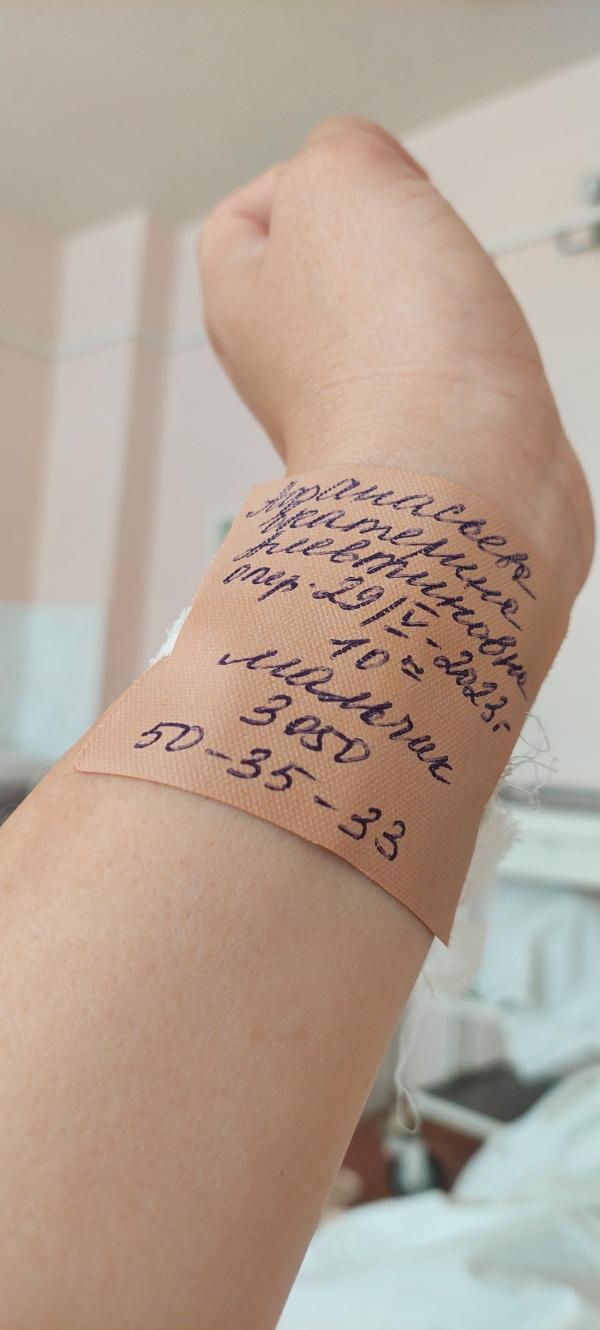 Афанасьева
Екатерина
Алевтиновна
опер. 29/IV-2023г.
10 ⁼
мальчик
3050
50-35-33